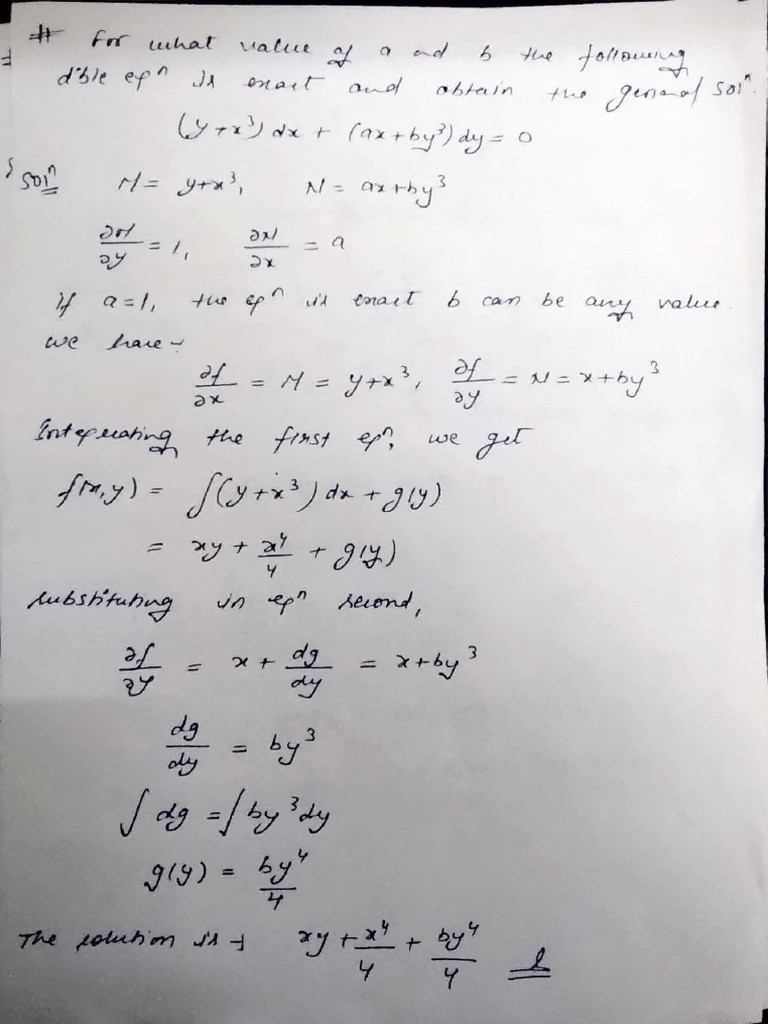 # For what value of a and b the following
d'ble eqⁿ is exact and obtain the general solⁿ.
(y+x³) dx + (ax+by³) dy = 0
Solⁿ M = y+x³, N = ax+by³
∂M/∂y = 1, ∂N/∂x = a
if a=1, the eqⁿ is exact b can be any value.
we have →
∂f/∂x = M = y+x³, ∂f/∂y = N = x+by³
Integrating the first eqⁿ, we get
f(x,y) = ∫(y+x³) dx + g(y)
= xy + x⁴/4 + g(y)
substituting in eqⁿ second,
∂f/∂y = x + dg/dy = x+by³
dg/dy = by³
∫ dg = ∫ by³ dy
g(y) = by⁴/4
The solution is → xy + x⁴/4 + by⁴/4